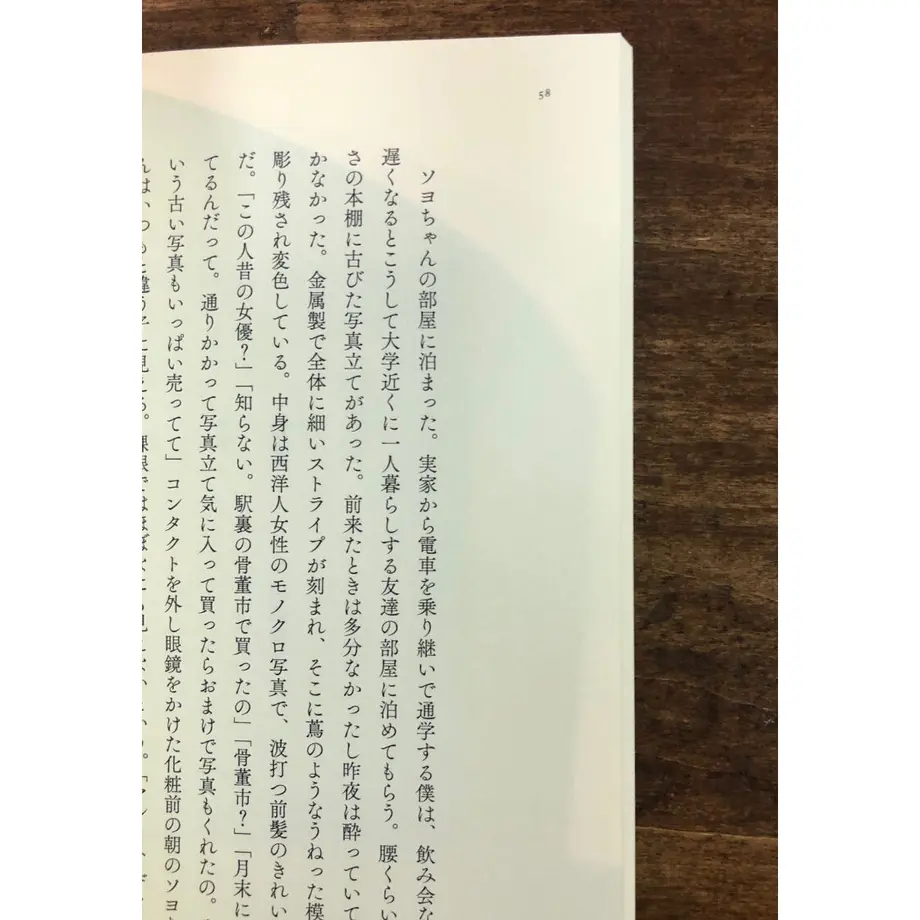 58
ソヨちゃんの部屋に泊まった。実家から電車を乗り継いで通学する僕は、飲み会な
遅くなるとこうして大学近くに一人暮らしする友達の部屋に泊めてもらう。腰くらい
さの本棚に古びた写真立てがあった。前来たときは多分なかったし昨夜は酔っていて
かなかった。金属製で全体に細いストライプが刻まれ、そこに蔦のようなうねった模
彫り残され変色している。中身は西洋人女性のモノクロ写真で、波打つ前髪のきれい
だ。「この人昔の女優?」「知らない。駅裏の骨董市で買ったの」「骨董市?」「月末に
てるんだって。通りかかって写真立て気に入って買ったらおまけで写真もくれたの。
いう古い写真もいっぱい売ってて」コンタクトを外し眼鏡をかけた化粧前の朝のソヨ